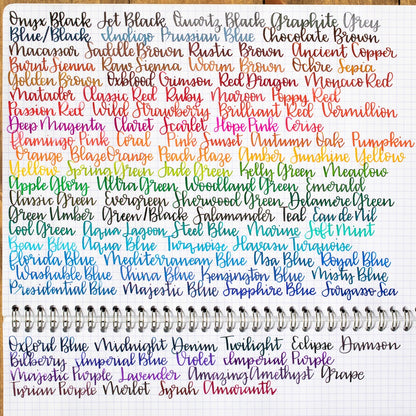 Onyx Black Jet Black Quartz Black Graphite Grey
Blue/Black Indigo Prussian Blue Chocolate Brown
Macassar Saddle Brown Rustic Brown Ancient Copper
Burnt Sienna Raw Sienna Warm Brown Ochre Sepia
Golden Brown Oxblood Crimson Red Dragon Monaco Red
Matador Classic Red Ruby Maroon Poppy Red
Passion Red Wild Strawberry Brilliant Red Vermillion
Deep Magenta Claret Scarlet Hope Pink Cerise
Flamingo Pink Coral Pink Sunset Autumn Oak Pumpkin
Orange Blaze Orange Peach Haze Amber Sunshine Yellow
Yellow Spring Green Jade Green Kelly Green Meadow
Apple Glory Ultra Green Woodland Green Emerald
Classic Green Evergreen Sherwood Green Delamere Green
Green Umber Green/Black Salamander Teal Eau de Nil
Cool Green Aqua Lagoon Steel Blue Marine Soft Mint
Beau Blue Aqua Blue Turquoise Havasu Turquoise
Florida Blue Mediterranean Blue Asa Blue Royal Blue
Washable Blue China Blue Kensington Blue Misty Blue
Presidential Blue Majestic Blue Sapphire Blue Sargasso Sea
Oxford Blue Midnight Denim Twilight Eclipse Damson
Bilberry Imperial Blue Violet Imperial Purple
Majestic Purple Lavender Amazing Amethyst Grape
Tyrian Purple Merlot Syrah Amaranth